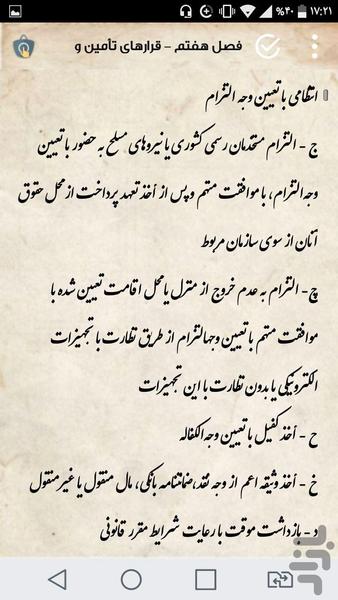 %۴۰ ۱۷:۲۱
فصل هفتم - قرارهای تأمین و
انتظامی با تعیین وجه التزام
ج - التزام مستخدمان رسمی کشوری یا نیروهای مسلح به حضور با تعیین
وجه التزام، با موافقت متهم و پس از أخذ تعهد پرداخت از محل حقوق
آنان از سوی سازمان مربوط
چ - التزام به عدم خروج از منزل یا محل اقامت تعیین شده با
موافقت متهم با تعیین وجهالتزام از طریق نظارت با تجهیزات
الکترونیکی یا بدون نظارت با این تجهیزات
ح - أخذ کفیل با تعیین وجه الکفاله
خ - أخذ وثیقه اعم از وجه نقد، ضمانتنامه بانکی، مال منقول یا غیر منقول
د - بازداشت موقت با رعایت شرایط مقرر قانونی
بازار